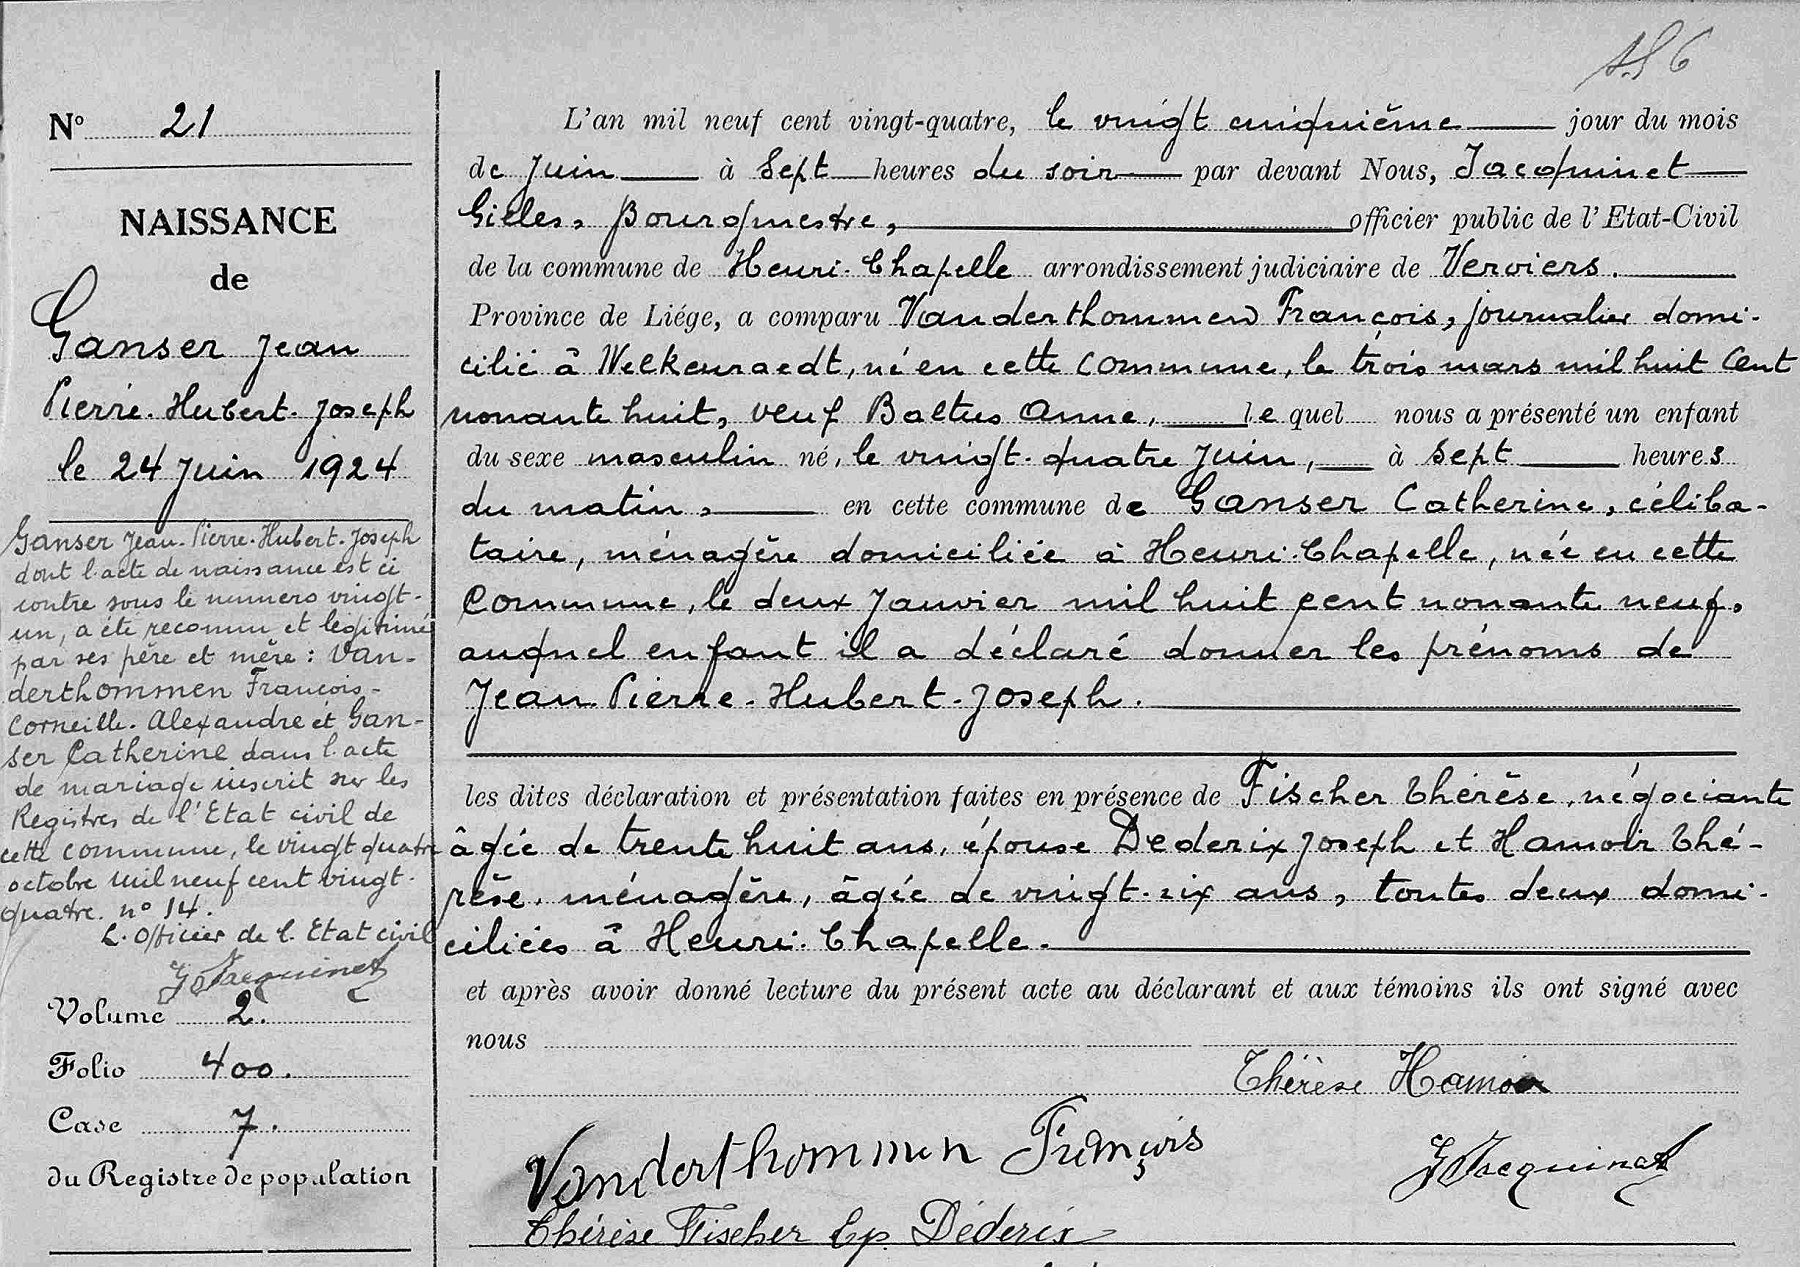 156
N° 21
NAISSANCE
de
Ganser Jean
Pierre-Hubert-Joseph
le 24 Juin 1924
Ganser Jean-Pierre-Hubert-Joseph
dont l'acte de naissance est ci
contre sous le numero vingt-
un, a été reconnu et légitimé
par ses père et mère : Van-
derthommen François-
Corneille-Alexandre et Gan-
ser Catherine dans l'acte
de mariage inscrit sur les
Registres de l'Etat civil de
cette commune, le vingt quatre
octobre mil neuf cent vingt-
quatre. n° 14.
L'Officier de l'Etat civil
G Jacquinet
Volume 2.
Folio 400.
Case 7.
du Registre de population
L'an mil neuf cent vingt-quatre, le vingt cinquième jour du mois
de Juin à Sept heures du soir par devant Nous, Jacquinet
Gilles, Bourgmestre, officier public de l'Etat-Civil
de la commune de Henri-Chapelle arrondissement judiciaire de Verviers.
Province de Liége, a comparu Vanderthommen François, journalier domi-
cilié à Welkenraedt, né en cette commune, le trois mars mil huit cent
nonante huit, veuf Baltus Anne, le quel nous a présenté un enfant
du sexe masculin né, le vingt-quatre Juin, à Sept heures
du matin, en cette commune de Ganser Catherine, céliba-
taire, ménagère domiciliée à Henri-Chapelle, née en cette
Commune, le deux Janvier mil huit cent nonante neuf,
auquel enfant il a déclaré donner les prénoms de
Jean-Pierre-Hubert-Joseph.
les dites déclaration et présentation faites en présence de Fischer Thérèse, négociante
âgée de trente huit ans, épouse Dederix Joseph et Hamoir Thé-
rèse, ménagère, âgée de vingt-six ans, toutes deux domi-
ciliées à Henri-Chapelle.
et après avoir donné lecture du présent acte au déclarant et aux témoins ils ont signé avec
nous
Thérèse Hamoir
Vanderthommen François
G Jacquinet
Thérèse Fischer Ep. Déderix